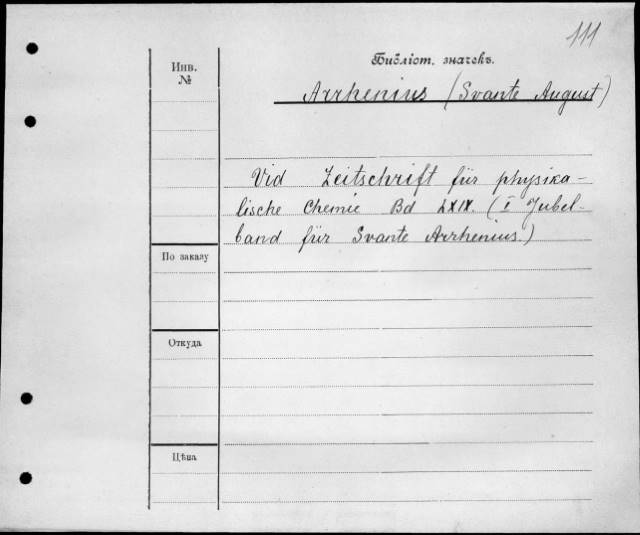 111
Библіот. значекъ.
Инв.
№
Arrhenius (Svante August)
Vid Zeitschrift für physika-
lische Chemie Bd LXIX. (I Jubel-
band für Svante Arrhenius.)
По заказу
Откуда
Цѣна